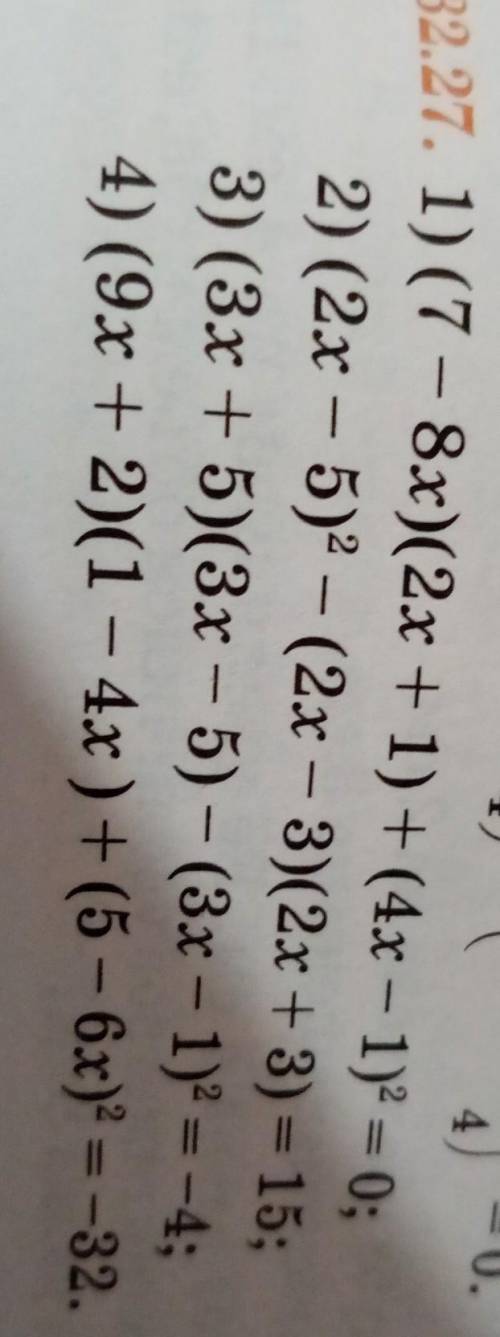 4) = 0.
32.27. 1) (7 – 8x)(2x + 1) + (4x – 1)² = 0;
2) (2x – 5)² – (2x – 3)(2x + 3) = 15;
3) (3x + 5)(3x – 5) – (3x – 1)² = –4;
4) (9x + 2)(1 – 4x) + (5 – 6x)² = –32.